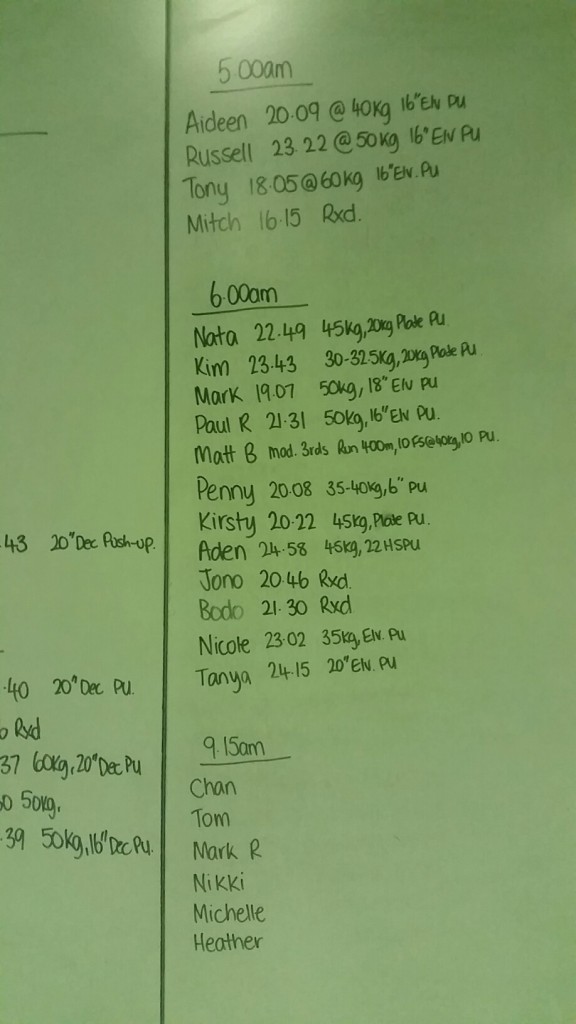 43 20"Dec Push-up.
.40 20"Dec PU.
Rxd
37 60kg, 20"Dec PU
0 50kg,
.39 50kg, 16"Dec PU.
5.00am
Aideen 20.09 @ 40kg 16"Elv PU
Russell 23.22 @ 50kg 16"Elv PU
Tony 18.05@60kg 16"Elv. PU
Mitch 16.15 Rxd.
6.00am
Nata 22.49 45kg, 20kg Plate PU.
Kim 23.43 30-32.5kg, 20kg Plate PU
Mark 19.07 50kg, 18" Elv PU
Paul R 21.31 50kg, 16"Elv PU.
Matt B mod. 3rds Run 400m, 10 FS@40kg, 10 PU.
Penny 20.08 35-40kg, 6" PU
Kirsty 20.22 45kg, Plate PU.
Aden 24.58 45kg, 22 HSPU
Jono 20.46 Rxd.
Bodo 21.30 Rxd
Nicole 23.02 35kg, Elv. PU
Tanya 24.15 20"Elv. PU
9.15am
Chan
Tom
Mark R
Nikki
Michelle
Heather